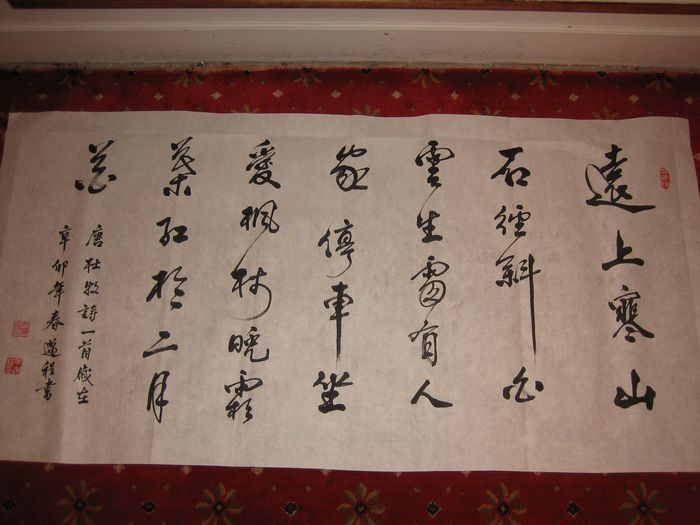 遠上寒山
石徑斜白
雲生處有人
家停車坐
愛楓林晚霜
葉紅於二月
花
唐杜牧詩一首歲在
辛卯年春程書